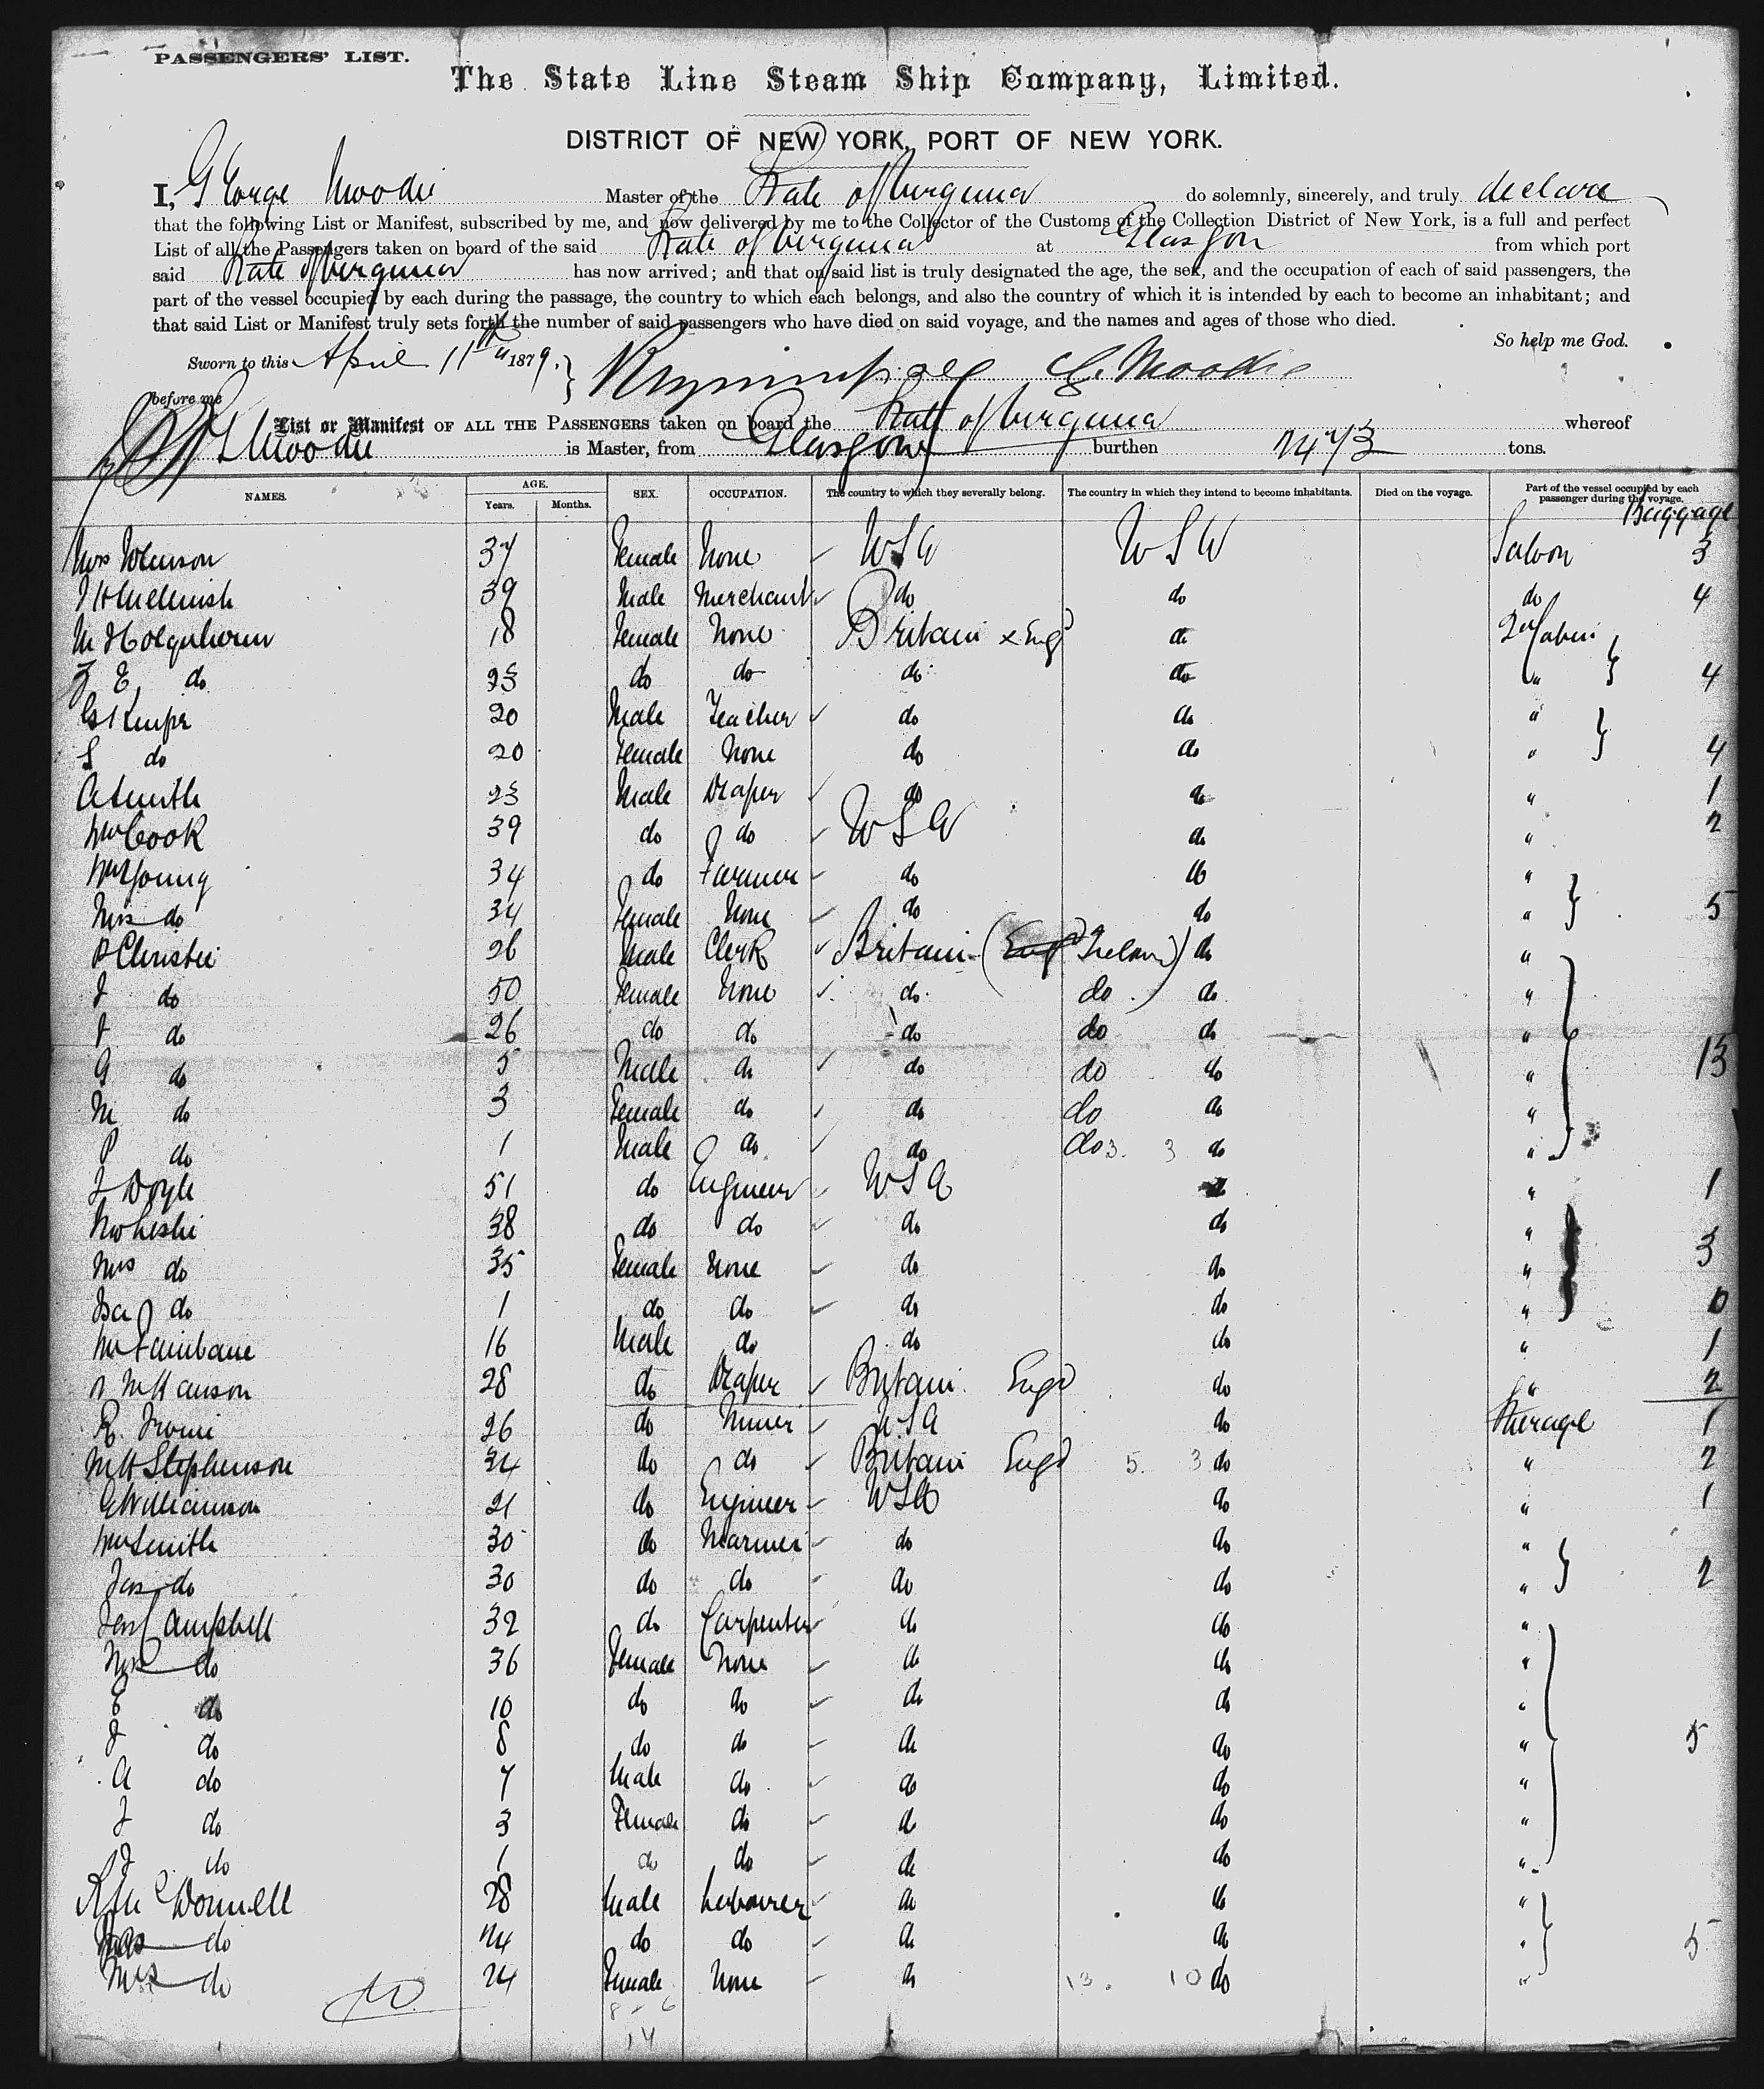 PASSENGERS' LIST.
The State Line Steam Ship Company, Limited.
DISTRICT OF NEW YORK, PORT OF NEW YORK.
I, George Moodie Master of the State of Virginia do solemnly, sincerely, and truly declare
that the following List or Manifest, subscribed by me, and now delivered by me to the Collector of the Customs of the Collection District of New York, is a full and perfect
List of all the Passengers taken on board of the said State of Virginia at Glasgow from which port
said State of Virginia has now arrived; and that on said list is truly designated the age, the sex, and the occupation of each of said passengers, the
part of the vessel occupied by each during the passage, the country to which each belongs, and also the country of which it is intended by each to become an inhabitant; and
that said List or Manifest truly sets forth the number of said passengers who have died on said voyage, and the names and ages of those who died.
So help me God.
Sworn to this April 11th 1879. G. Moodie
before me
List or Manifest OF ALL THE PASSENGERS taken on board the State of Virginia whereof
Moodie is Master, from Glasgow burthen 2473 tons.
NAMES. AGE. Years. Months. SEX. OCCUPATION. The country to which they severally belong. The country in which they intend to become inhabitants. Died on the voyage. Part of the vessel occupied by each passenger during the voyage. Baggage
Mrs 37 Female None USA USA Saloon 3
39 Male Merchant do do do 4
18 Female None Britain x Engd do 2d Cabin
E do 23 do do do do " 4
20 Male Teacher do do "
S do 20 Female None do do " 4
A Smith 23 Male Draper do do " 1
Wm Cook 39 do do USA do " 2
Wm Young 34 do Farmer do do "
Mrs do 34 Female None do do " 5
P Christie 26 Male Clerk Britain (Ireland) do "
J do 50 Female None do do do "
J do 26 do do do do do "
G do 5 Male do do do do " 13
M do 3 Female do do do do "
P do 1 Male do do do 3. 3 do "
J Doyle 51 do Engineer USA do " 1
Wm Leslie 38 do do do do "
Mrs do 35 Female None do do " 3
Isa do 1 do do do do " 0
16 Male do do do " 1
28 do Draper Britain Engd do " 2
R. Irvine 26 do Miner USA do Steerage 1
M H Stephenson 24 do do Britain Engd 5. 3 do " 2
G Williamson 21 do Engineer USA do " 1
Wm Smith 30 do Mariner do do "
Jas do 30 do do do do " 2
Jas Campbell 32 do Carpenter do do "
Mrs do 36 Female None do do "
E do 10 do do do do "
J do 8 do do do do " 5
A do 7 Male do do do "
J do 3 Female do do do "
J do 1 do do do do "
R McDonnell 28 Male Labourer do do "
do 24 do do do do " 5
Mrs do 24 Female None do 13. 10 do "
8 - 6
14